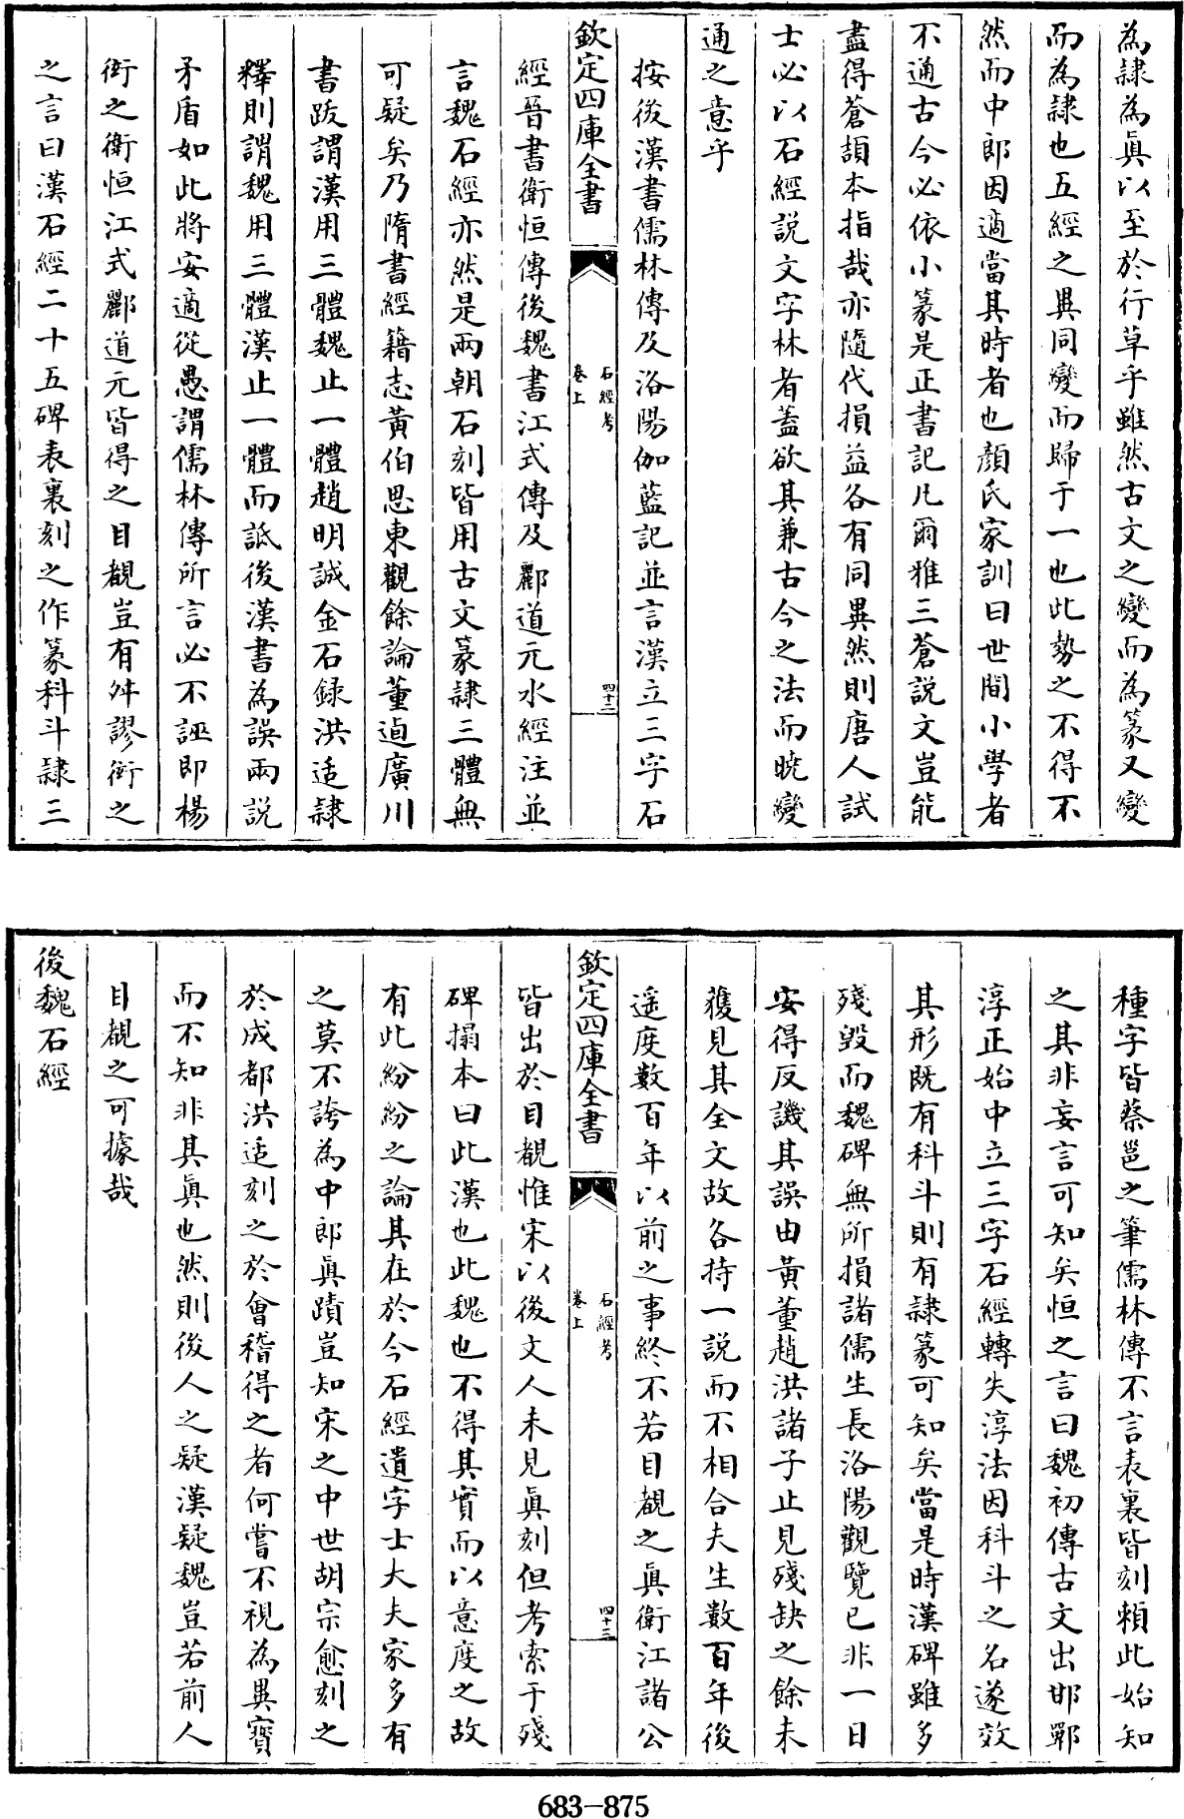 為隸為真以至於行草乎雖然古文之變而為篆又變
而為隸也五經之異同變而歸于一也此勢之不得不
然而中郎因適當其時者也顏氏家訓曰世間小學者
不通古今必依小篆是正書記凡爾雅三蒼說文豈能
盡得蒼頡本指哉亦隨代損益各有同異然則唐人試
士必以石經說文字林者蓋欲其兼古今之法而曉變
通之意乎
按後漢書儒林傳及洛陽伽藍記並言漢立三字石
欽定四庫全書
石經考
卷上
四十二
經晉書衛恒傳後魏書江式傳及酈道元水經注並
言魏石經亦然是兩朝石刻皆用古文篆隸三體無
可疑矣乃隋書經籍志黃伯思東觀餘論董逌廣川
書跋謂漢用三體魏止一體趙明誠金石録洪适隸
釋則謂魏用三體漢止一體而詆後漢書為誤兩說
矛盾如此將安適從愚謂儒林傳所言必不誣即楊
衒之衛恒江式酈道元皆得之目覩豈有舛謬衒之
之言曰漢石經二十五碑表裏刻之作篆科斗隸三
種字皆蔡邕之筆儒林傳不言表裏皆刻賴此始知
之其非妄言可知矣恒之言曰魏初傳古文出邯鄲
淳正始中立三字石經轉失淳法因科斗之名遂效
其形既有科斗則有隸篆可知矣當是時漢碑雖多
殘毀而魏碑無所損諸儒生長洛陽觀覽已非一日
安得反譏其誤由黃董趙洪諸子止見殘缺之餘未
獲見其全文故各持一說而不相合夫生數百年後
遥度數百年以前之事終不若目覩之真衛江諸公
欽定四庫全書
石經考
卷上
四十三
皆出於目覩惟宋以後文人未見真刻但考索于殘
碑搨本曰此漢也此魏也不得其實而以意度之故
有此紛紛之論其在於今石經遺字士大夫家多有
之莫不誇為中郎真蹟豈知宋之中世胡宗愈刻之
於成都洪适刻之於會稽得之者何嘗不視為異寶
而不知非其真也然則後人之疑漢疑魏豈若前人
目覩之可據哉
後魏石經
683-875